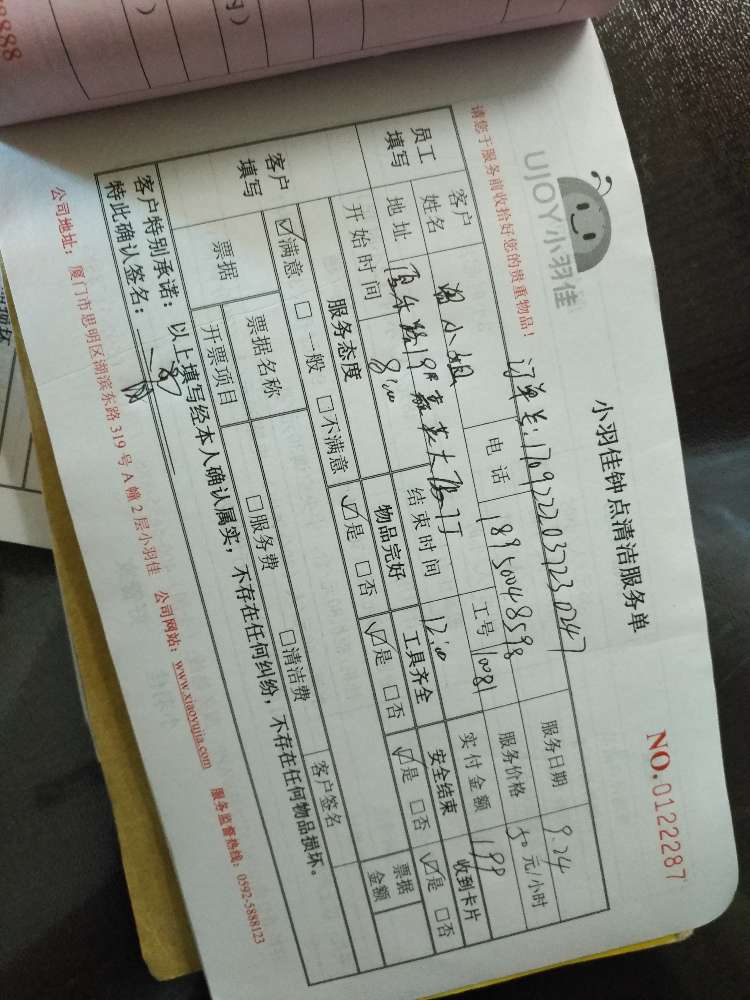 8888
UJOY小羽佳
小羽佳钟点清洁服务单
NO.0122287
请您于服务前收拾好您的贵重物品！
订单号:17092220372230247
服务日期 9.24
员工填写
客户姓名 小姐
电话 18950048598
服务价格 50元/小时
地址
工号 10081
实付金额 199
开始时间 8:00
结束时间 12:00
客户填写
服务态度
物品完好
工具齐全
安全结束
收到卡片
☑满意 □一般 □不满意
☑是 □否
☑是 □否
☑是 □否
☑是 □否
票据
票据名称
客户签名
票据金额
开票项目
□服务费
□清洁费
客户特别承诺：以上填写经本人确认属实，不存在任何纠纷，不存在任何物品损坏。
特此确认签名：
公司地址：厦门市思明区湖滨东路319号A幢2层小羽佳 公司网站：www.xiaoyujia.com 服务监督热线：0592-5888123